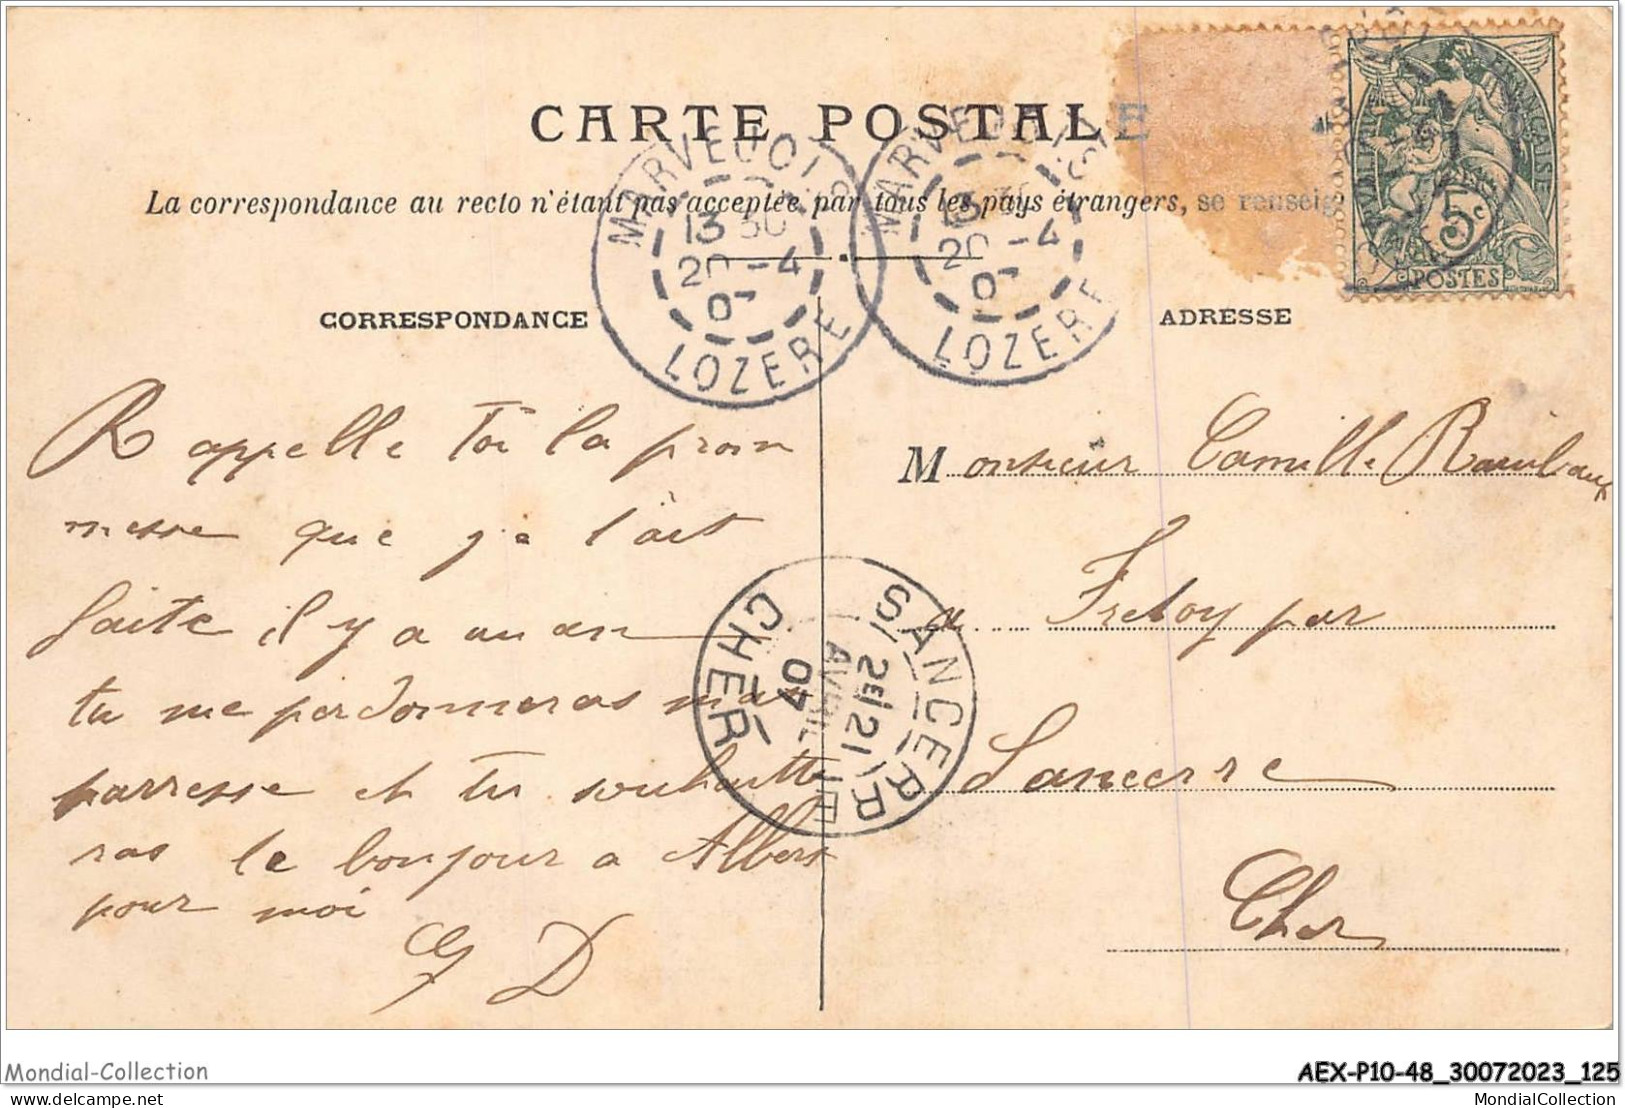 CARTE POSTALE
La correspondance au recto n'étant pas acceptée par tous les pays étrangers, se renseig
RÉPUBLIQUE FRANÇAISE
5c
POSTES
MARVEJOLS
13 30
20 -4
07
LOZERE
MARVEJOLS
13 30
20 -4
07
LOZERE
CORRESPONDANCE
ADRESSE
Rappelle toi la prom
messe que je t'ait
faite il y a un an
tu me perdonneras ma
parresse et tu souhaitte
ras le bonjour a Albert
pour moi
G D
Monsieur Camille Raimbaux
a Fretoy par
Sancerre
Cher
SANCERRE
2E 21
AVRIL
07
CHER
Mondial-Collection
AEX-P10-48_30072023_125
delcampe.net
MondialCollection